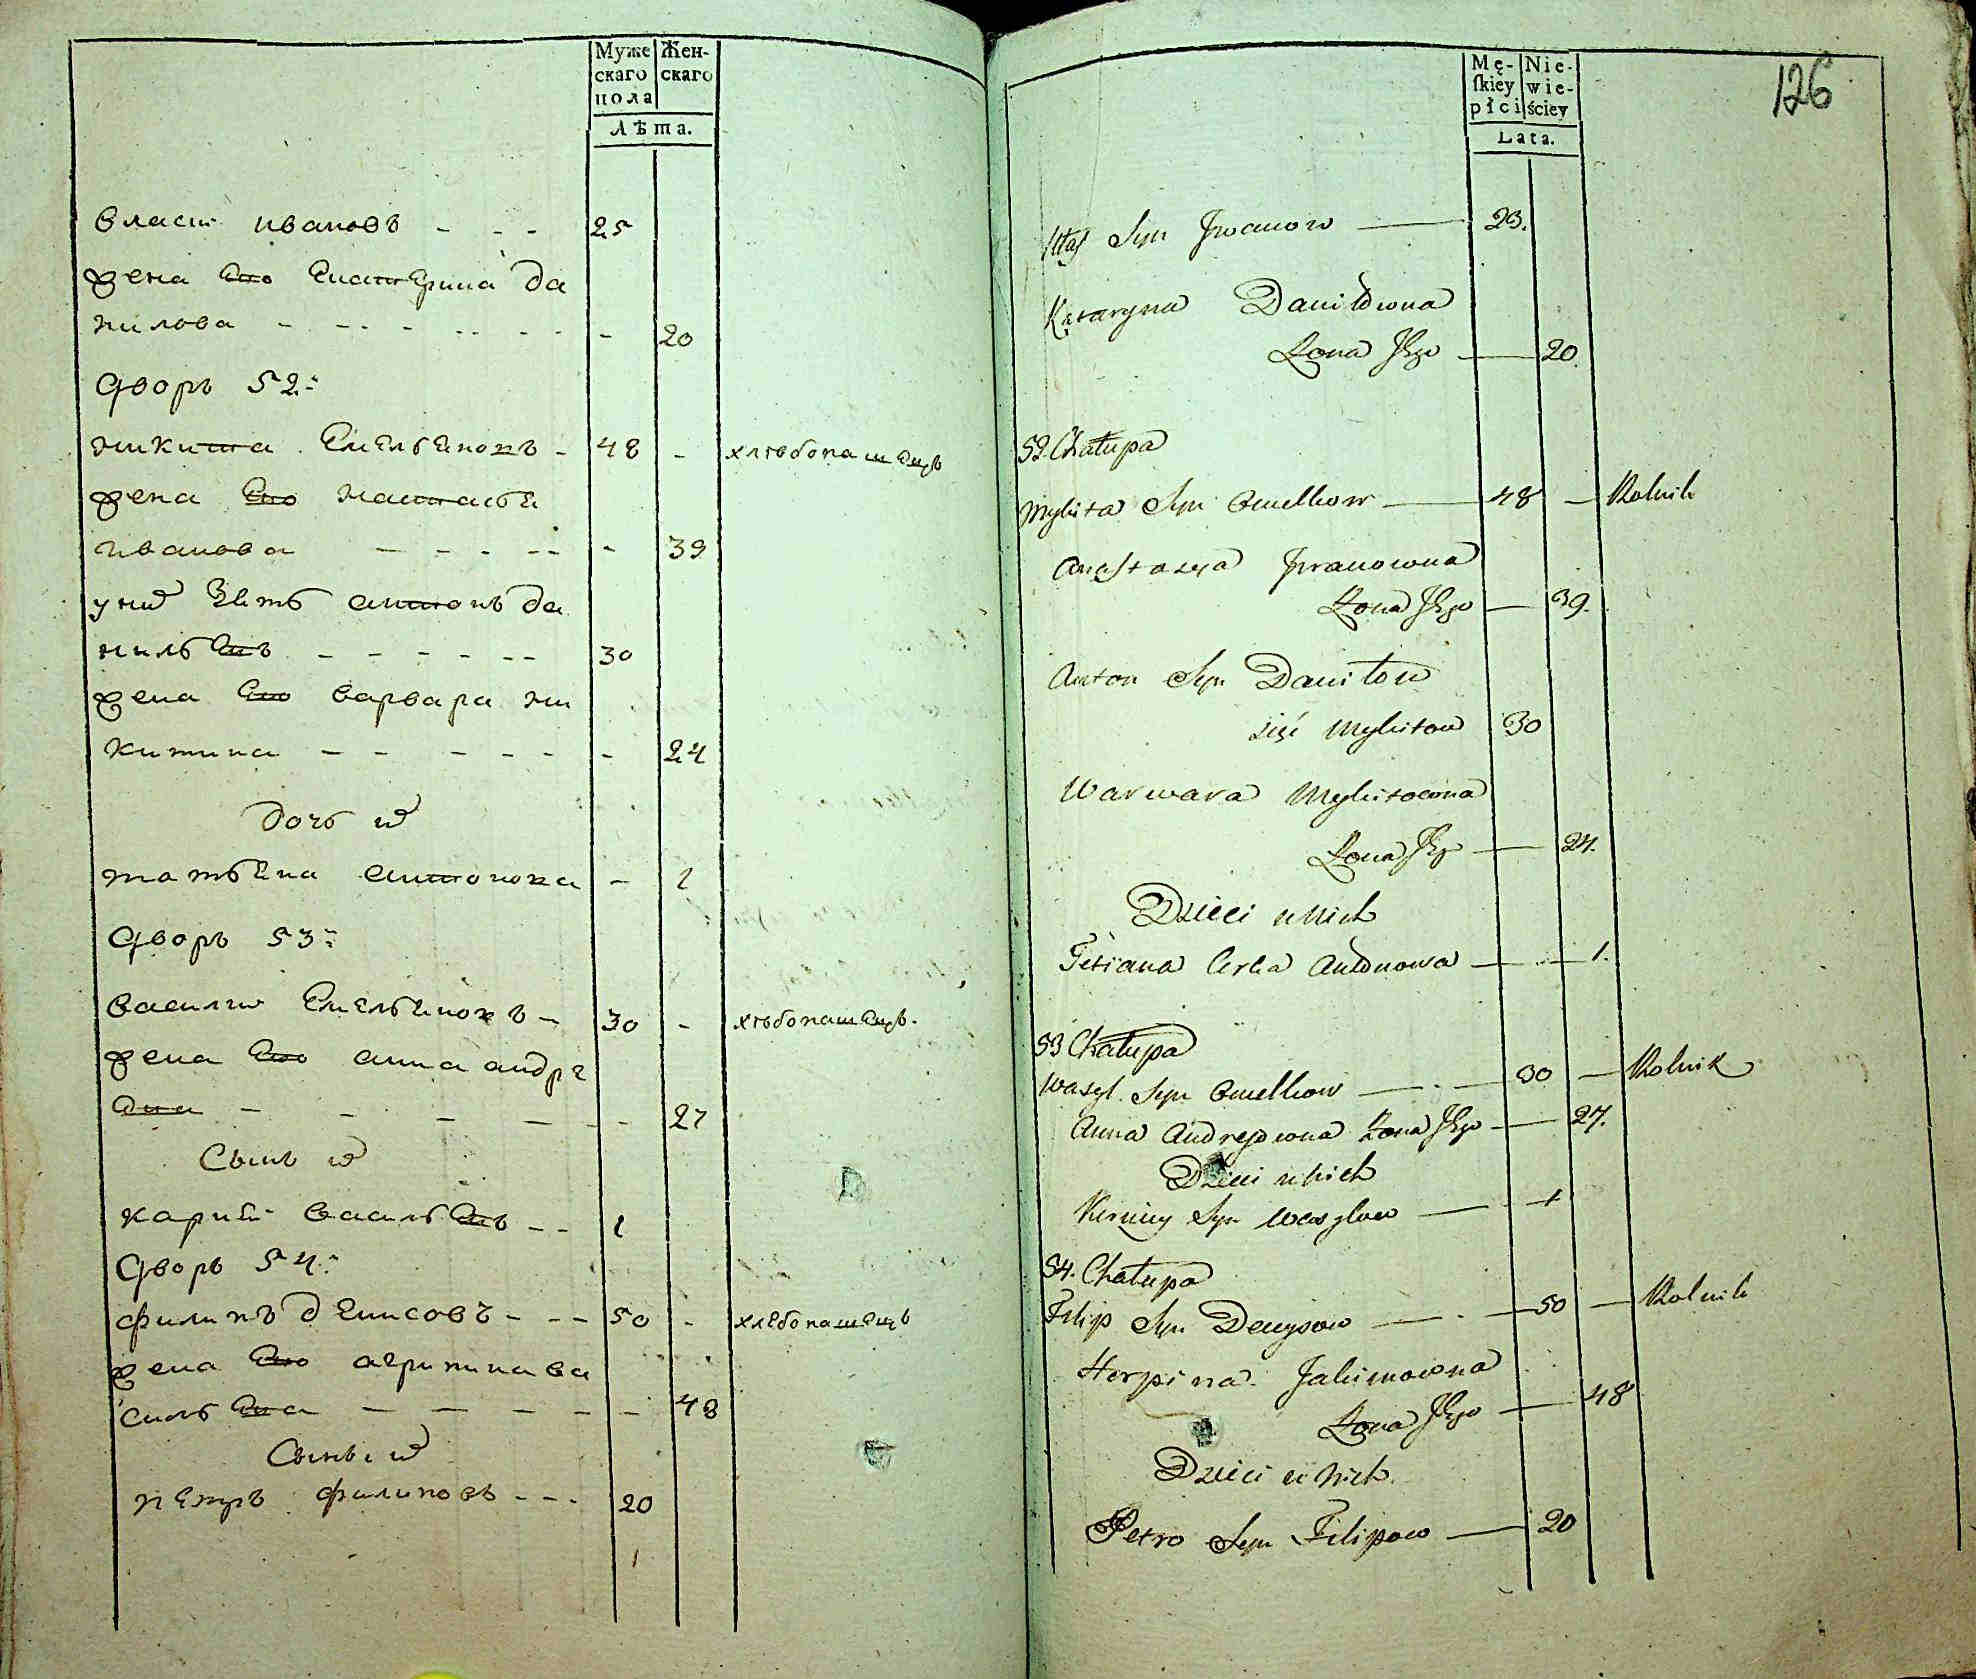 Муже
скаго
пола
Жен-
скаго
Лѣта.
власъ ивановъ - - - 25
жена Его Екатерина да
нилова - - - - - - - 20
Дворъ 52:
никита Емельяновъ - 48 - хлѣбопашецъ
жена Его настасья
иванова - - - - - - 39
у них зять антонъ да
нильевъ - - - - - - 30
жена Его варвара ни
китина - - - - - - 24
дочь их
татьяна антонова - 1
Дворъ 53:
василий Емельяновъ - 30 - хлѣбопашецъ.
жена Его анна андре
ева - - - - - 27
Сынъ их
васильевъ - - 1
Дворъ 54:
филипъ денисовъ - - - 50 - хлебопашецъ
жена Его агрипина ва
сильева - - - - - - 48
Сыны их
петръ филиповъ - - - 20
Mę-
skiey
płci
Nie-
wie-
ściey
Lata.
126
Własz Syn Jwanow — 23.
Kataryna Daniłowna
Żona Jego — 20.
52. Chałupa
Mykita Syn Omelkow — 48 — Rolnik
Anastazya Jwanowna
Żona Jego — 39.
Anton Syn Daniłow
zięć Mykitow 30
Warwara Mykitowna
Żona Jego — 24.
Dzieci u nich
Tetiana Corka Antonowa — 1.
53 Chałupa
Wasyl Syn Omelkow — 30 — Rolnik
Anna Andrejowna Żona Jego — 27.
Dzieci u nich
Syn Wasylow — 1
54. Chałupa
Filip Syn Denysow — 50 — Rolnik
Horpina Jakimowna
Żona Jego — 48
Dzieci u nich.
Petro Syn Filipow — 20